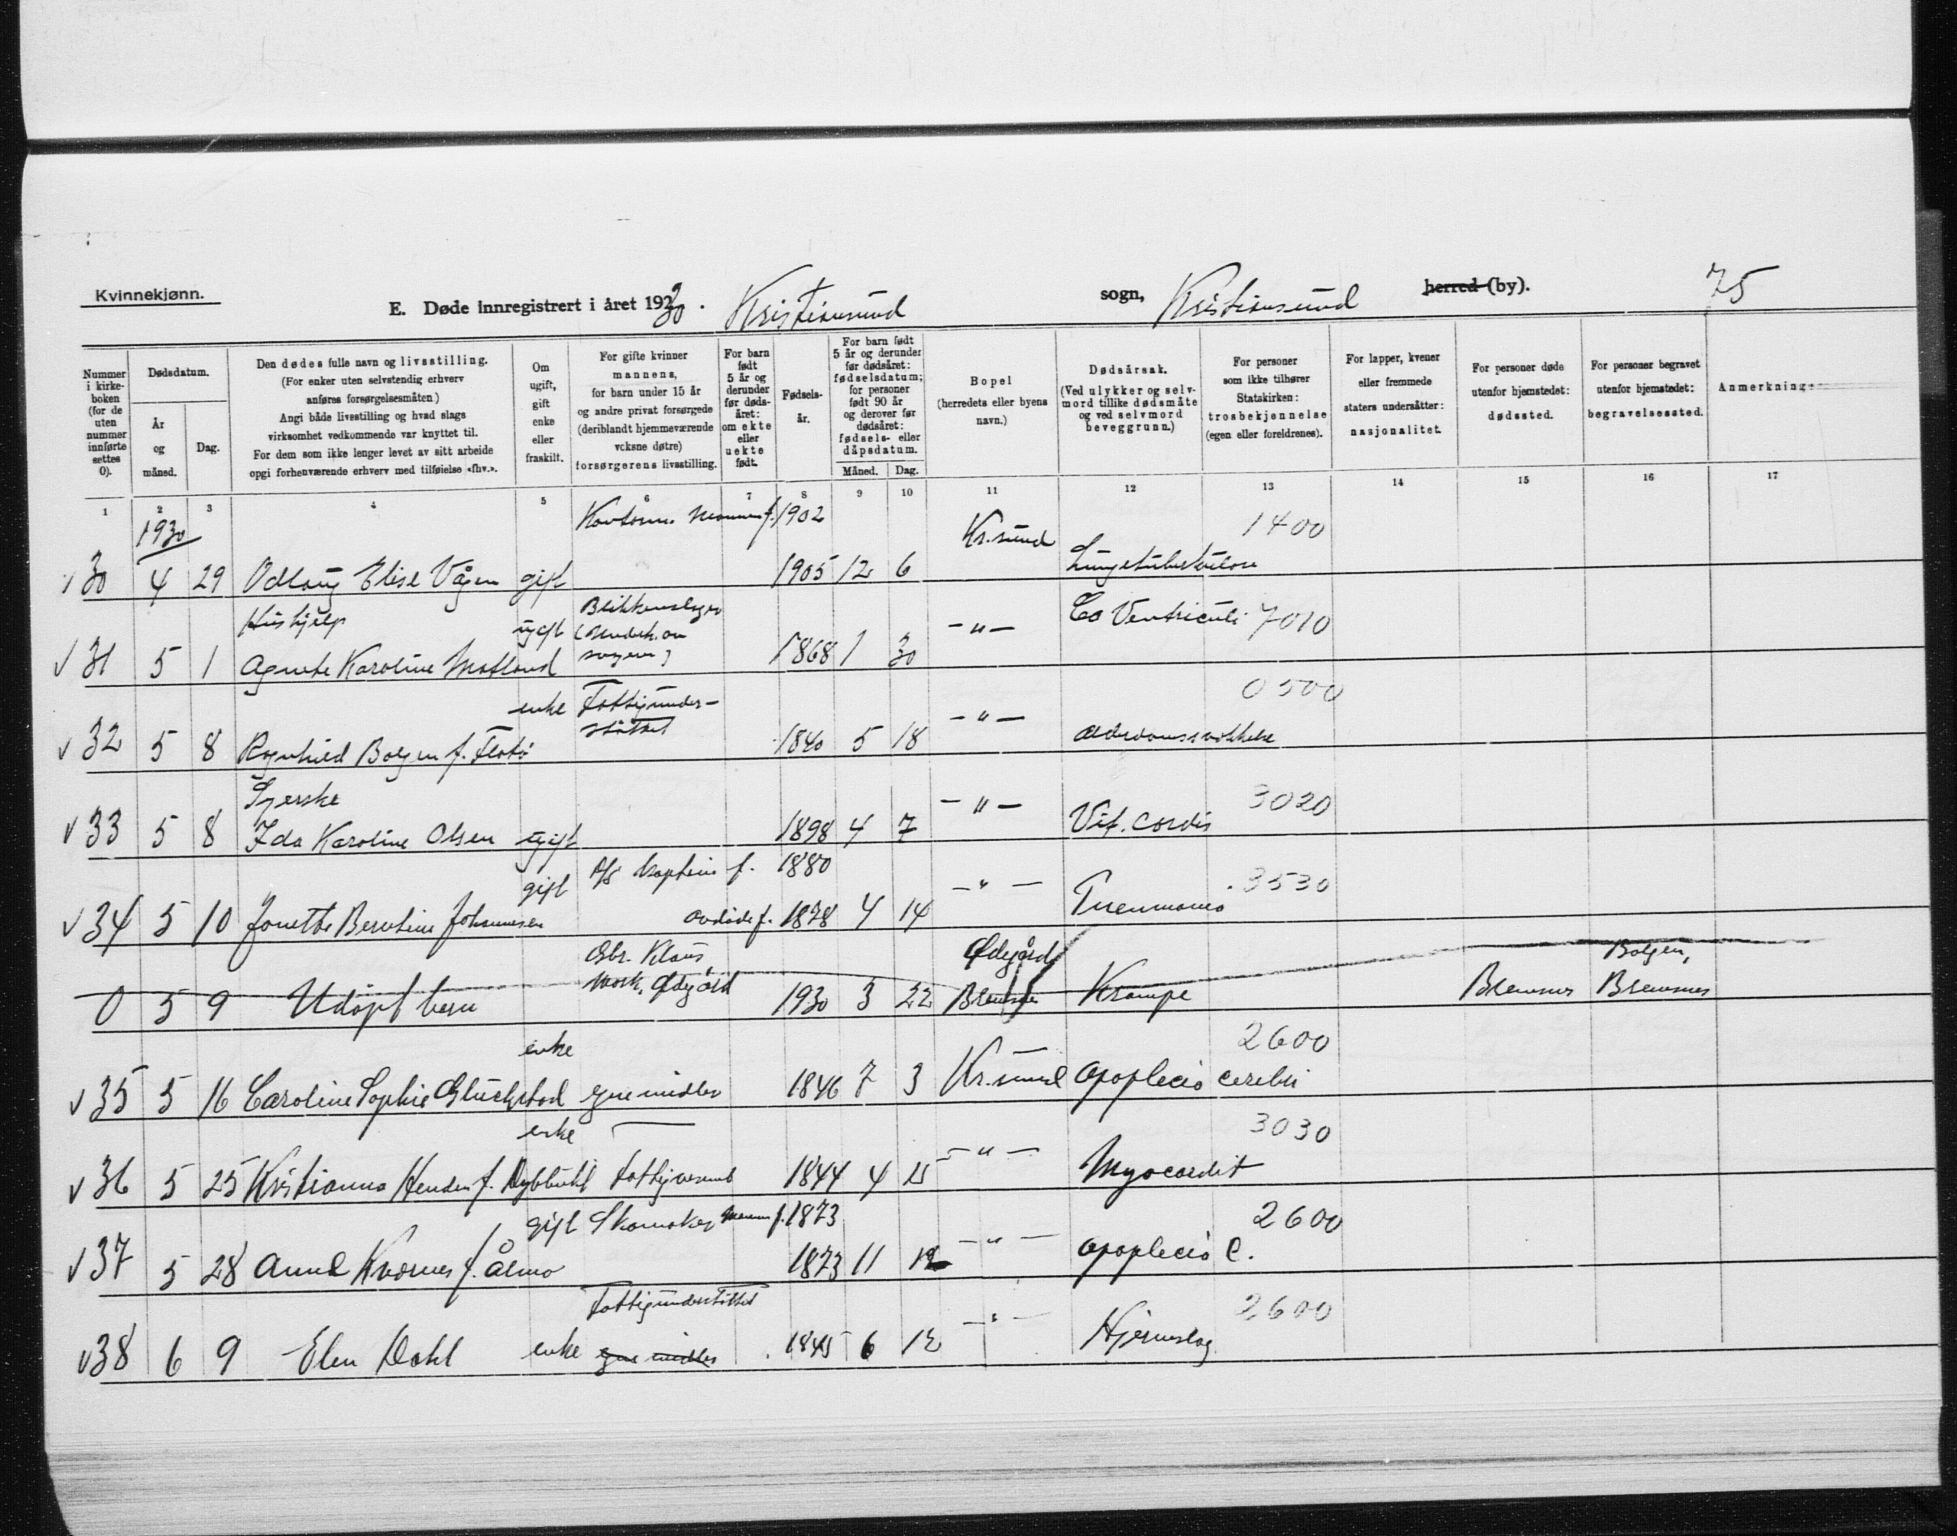 Kvinnekjønn.
E. Døde innregistrert i året 1930. Kristiansund sogn, Kristiansund herred (by). 75
Nummer i kirkeboken (for de uten nummer innførte settes 0).
Dødsdatum.
År og måned.
Dag.
Den dødes fulle navn og livsstilling.
(For enker uten selvstendig erhverv
anføres forsørgelsesmåten.)
Angi både livsstilling og hvad slags
virksomhet vedkommende var knyttet til.
For dem som ikke lenger levet av sitt arbeide
opgi forhenværende erhverv med tilføielse «fhv.».
Om
ugift,
gift
enke
eller
fraskilt.
For gifte kvinner
mannens,
for barn under 15 år
og andre privat forsørgede
(deriblandt hjemmeværende
voksne døtre)
forsørgerens livsstilling.
For barn
født
5 år og
derunder
før døds-
året:
om ekte
eller
uekte
født.
Fødsels-
år.
For barn født
5 år og derunder
før dødsåret:
fødselsdatum;
for personer
født 90 år
og derover før
dødsåret:
fødsels- eller
dåpsdatum.
Måned. Dag.
Bopel
(herredets eller byens
navn.)
Dødsårsak.
(Ved ulykker og selv-
mord tillike dødsmåte
og ved selvmord
beveggrunn.)
For personer
som ikke tilhører
Statskirken:
trosbekjennelse
(egen eller foreldrenes).
For lapper, kvener
eller fremmede
staters undersåtter:
nasjonalitet.
For personer døde
utenfor hjemstedet:
dødssted.
For personer begravet
utenfor hjemstedet:
begravelsessted.
Anmerkninger
1 2 3 4 5 6 7 8 9 10 11 12 13 14 15 16 17
1930 Mannen f. 1902 Kr.sund 1400
v 30 4 29 Odlaug Elise Vågen gift 1905 12 6 Lungetuberkulose
Hushjelp ugift Blikkenslager - " - Ca Ventriculi 7010
v 31 5 1 Agnete Karoline Matland 1868 1 30
enke Fattigunder- - " - 0500
støttet
v 32 5 8 Ragnhild Bolgen f. 1840 5 18 Alderdomssvakkelse
Syerske - " - 3020
v 33 5 8 Ida Karoline Olsen ugift 1898 4 7 Vit. cordis
gift Kaptein f. 1880 - " - 3530
v 34 5 10 Jonette Berntine Johannesen avdøde f. 1878 4 14 Pneumonia
Gbr. Klaus Ødegård Bolgen,
0 5 9 Udøpt barn Ødegård 1930 3 22 Bremsnes Krampe Bremsnes Bremsnes
enke 2600
v 35 5 16 Caroline Sophie Glückstad egne midler 1846 7 3 Kr.sund apoplecia cerebri
enke - " - 3030
v 36 5 25 Kristianna Henden f. Dybbuhl 1844 4 15 Myocardit
gift Skomaker Mannen f. 1873 - " - 2600
v 37 5 28 Anne Kvornes f. Ålmo 1873 11 12 apoplecia C.
Fattigunderstøttet - " - 2600
v 38 6 9 Elen Dahl enke egne midler 1845 6 12 Hjerneslag